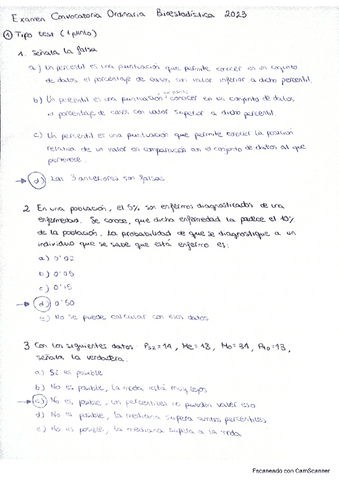 Examen Convocatoria Ordinaria Bioestadística 2023
① Tipo test (1 punto)
1. Señala la falsa
a) Un percentil es una puntuación que permite conocer en un conjunto
de datos el porcentaje de casos con valor inferior a dicho percentil.
b) Un percentil es una puntuación conocer en un conjunto de datos,
el porcentaje de casos con valor superior a dicho percentil.
c) Un percentil es una puntuación que permite conocer la posición
relativa de un valor en comparación con el conjunto de datos al que
pertenece.
d) Las 3 anteriores son falsas
2. En una población, el 5% son enfermos diagnosticados de una
enfermedad. Se conoce, que dicha enfermedad la padece el 10%
de la población. La probabilidad de que se diagnostique a un
individuo que se sabe que está enfermo es:
a) 0'02
b) 0'05
c) 0'15
d) 0'50
e) No se puede calcular con esos datos
3 Con los siguientes datos = 14, Me = 18, Mo = 34, = 13,
señala la verdadera:
a) Sí es posible
b) No es posible, la moda está muy lejos
c) No es posible, un percentiles no pueden valer eso
d) No es posible, la mediana supera ambos percentiles
e) No es posible, la mediana supera a la moda
Escaneado con CamScanner